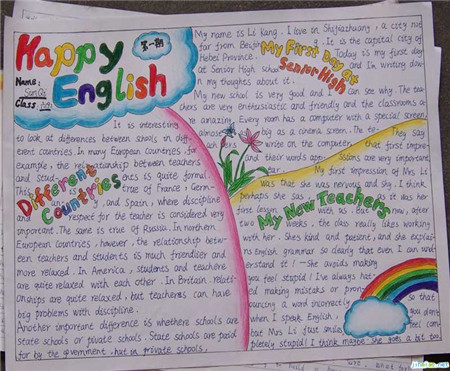 Happy English
第一期
Name:
Class:
My name is Li Kang. I live on Shijiazhuang, a city not
far from Beijing. It is the capital city of
Hebei Province. Today is my first day
at Senior High school and I'm writing down
my thoughts about it.
My First Day at
Senior High
My new school is very good and I can see why. The tea-
chers are very enthusiastic and friendly and the classrooms a
re amazing. Every room has a computer with a special screen,
almost as big as a cinema screen. The te-
achers write on the computer
and their words app
They say
that first impre-
ssions are very important.
My first impression of Mrs Li
was that she was nervous and shy. I think
perhaps she was, as it was her
first lesson with us. But now, after
two weeks, the class really likes working
with her. She's kind and patient, and she explai-
ns English grammar so clearly that even I can und-
erstand it! She avoids making
you feel stupid! I've always hat-
ed making mistakes or pron-
ouncing a word incorrectly
when I speak English,
but Mrs Li just smiles
so that
you don't
feel com-
pletely stupid! I think maybe she goes a bit too
My New Teachers
Different
Countries
It is interesting
to look at differences between schools in diff-
erent countries. In many European countries, for
example, the relationship between teachers
and stud ents is quite formal.
This is true of France, Germ-
any, and Spain, where discipline
and respect for the teacher is considered very
important. The same is true of Russia. In northern
European countries, however, the relationship betw-
een teachers and students is much friendlier and
more relaxed. In America, students and teachers
are quite relaxed with each other. In Britain, relati-
onships are quite relaxed, but teacheres can have
big problems with discipline.
Another important difference is whethere schools are
state schools or private schools. State schools are paid
for by the government, but in private schools,